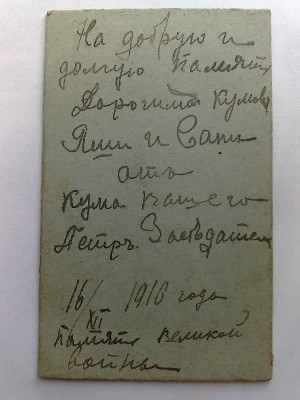 На добрую и
долгую память
Дорогимъ Кумовь
Яши и Сани
отъ
Кума Вашего
Петръ. Заседател
16/XII 1916 года
Память великой
войны